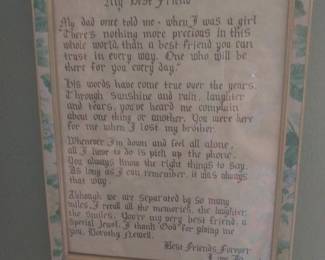 My Best Friend
My dad once told me - when I was a girl
"There's nothing more precious in this
whole world than a best friend you can
trust in every way. One who will be
there for you every day."
His words have come true over the years.
Through sunshine and rain, laughter
and tears, you've heard me complain
about one thing or another. You were here
for me when I lost my brother.
Whenever I'm down and feel all alone,
all I have to do is pick up the phone.
You always know the right things to say.
As long as I can remember, it was always
that way.
Although we are separated by so many
miles, I recall all the memories, the laughter,
the smiles. You're my very best friend, a
special Jewel. I thank God for giving me
you, Dorothy Newell.
Best Friends Forever